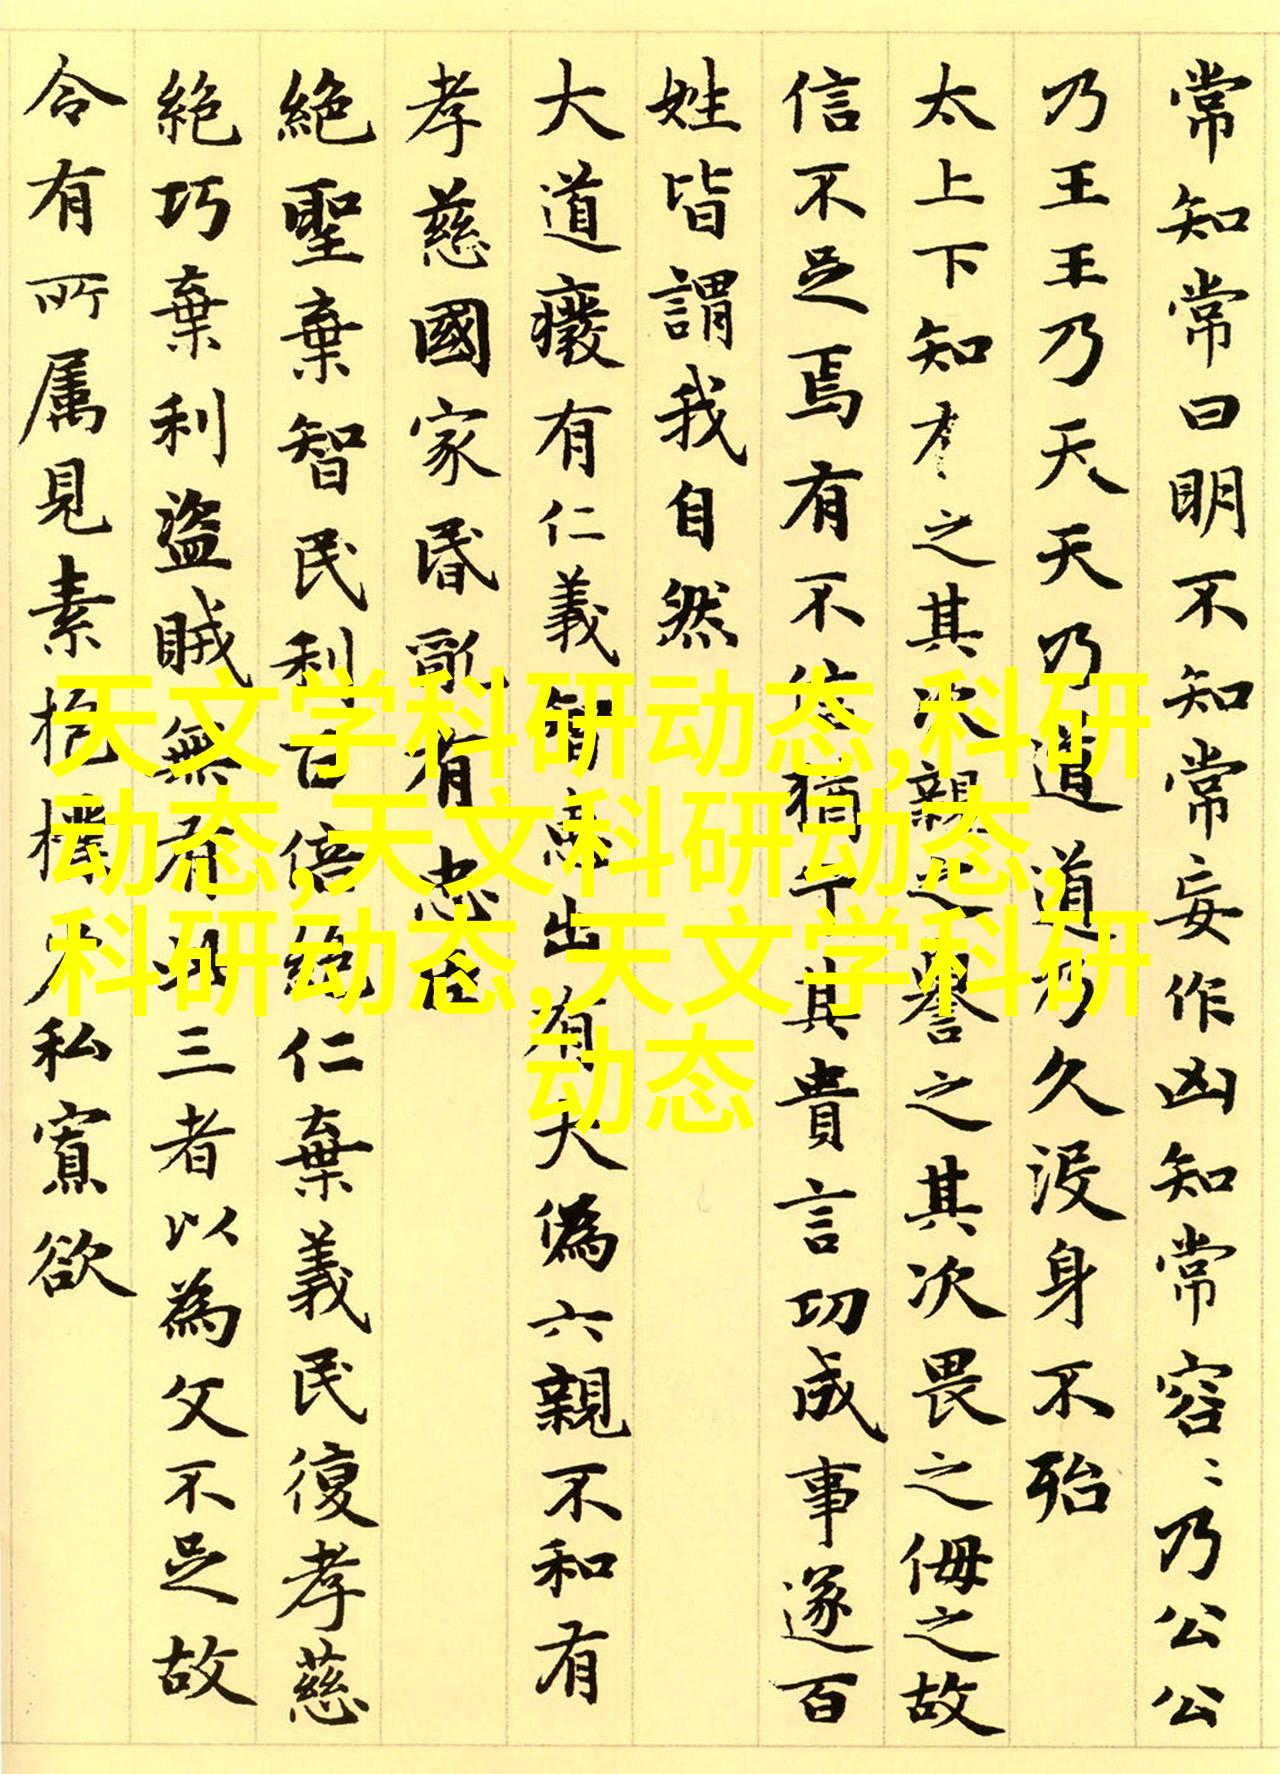 常知常曰明不知知常妄作凶知常容〻乃公公
乃王王乃天天乃道道乃久没身不殆
太上下知有之其次親之譽之其次畏之侮之故
信不足焉有不信猶于其貴言功成事遂百
姓皆謂我自然
大道癈有仁義智惠出有大偽六親不和有
孝慈國家昬亂有忠臣
絶聖棄智民利百倍絶仁棄義民復孝慈
絶巧棄利盜賊無有此三者以為文不足故
令有所属見素抱樸少私寡欲
天文学科研动态,科研
动态,天文科研动态,
科研动态,天文学科研
动态